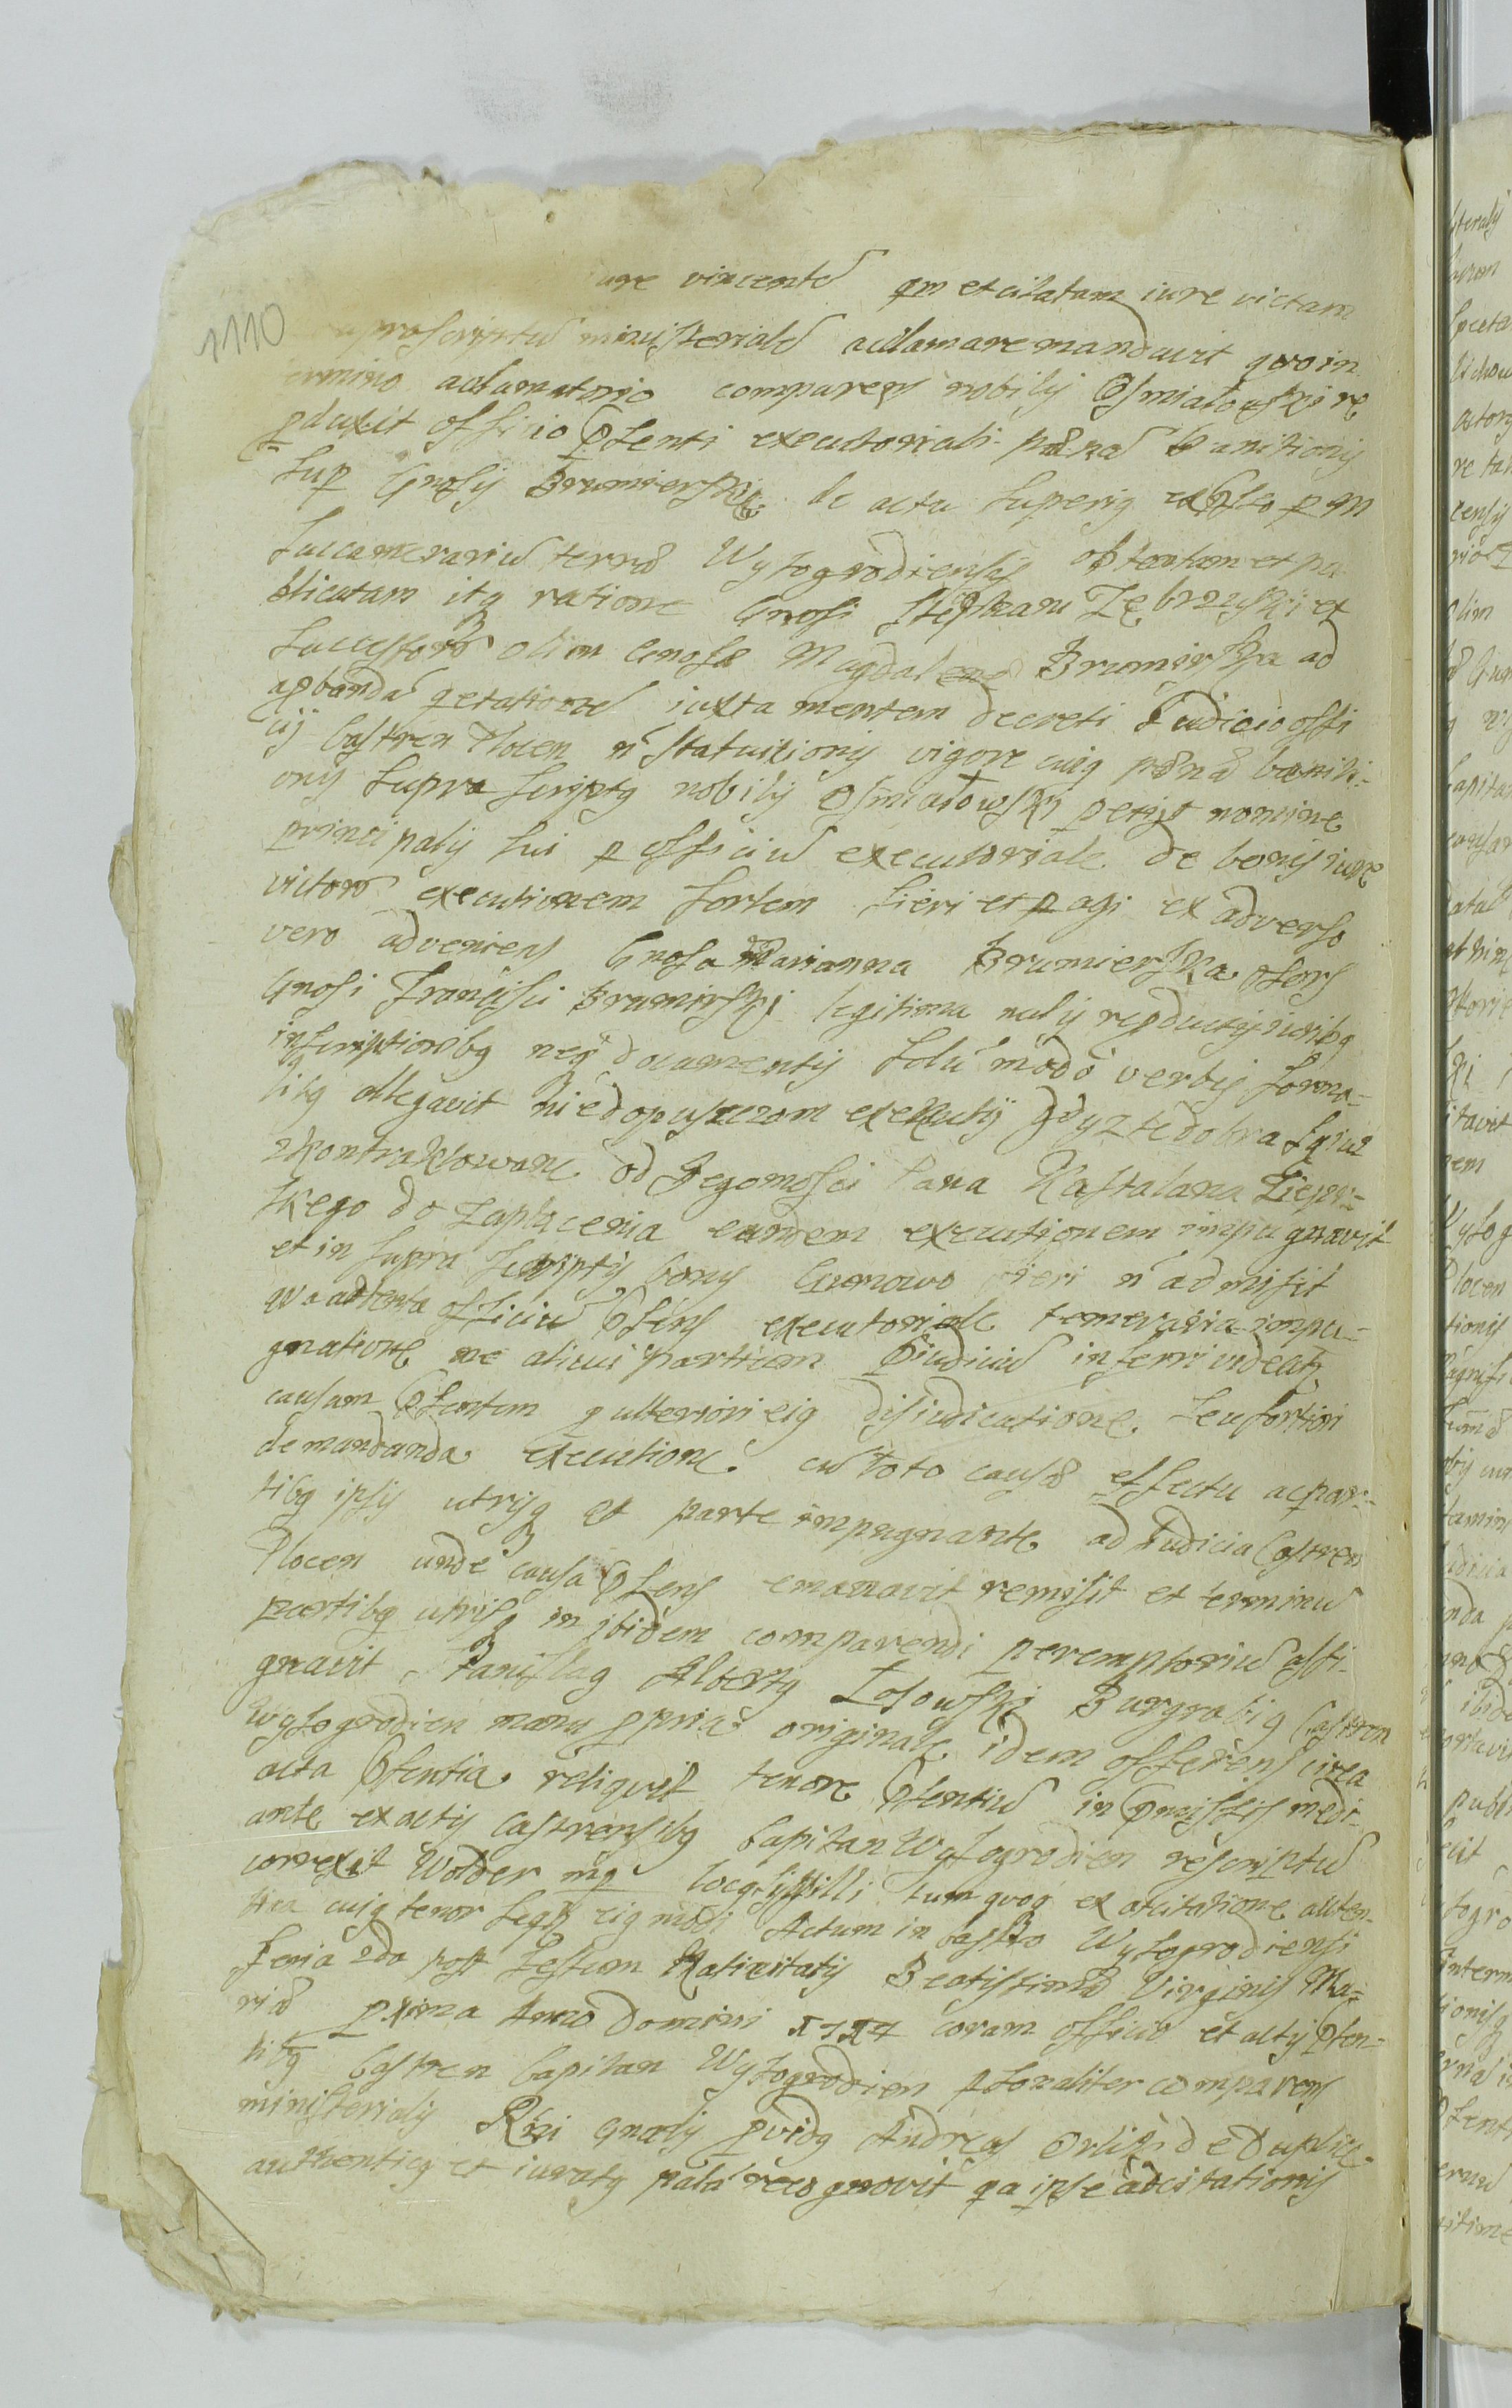 1110
ure vincentē qm et citatam iure victam
proscriptū ministerialē acclamare mandavit quo in
ermino aclamatorio comparens nobilis Osmiałowski re
pduxit officio pńsenti executoriali pænā banitionis
sup Gnosis Brumierskie de actu superig
succamerariū terræ Wyszogrodiensis obtentam et pu
blicatam itq ratione Gnosi Stephani Zębrzuski et
successorū olim Gnosæ Magdalenæ Brumirska ad
apbandā citationē iuxta mentem decreti Iudicio offi
cij Castren Plocen ń statuitionis vigore cuig pænæ baniti-
onis supra scriptæ nobilis Osmiałowski petijt nomine
principalis sui p officiū executoriale de bonis iure
victorū executionem fortem fieri et pagi ex adverso
vero adveniens Gnosa Marianna Brumierska
Gnosi Francisci Brumirski legitima nulis repductis iuribg
inscriptionibg neq documentis solū modo verbis forma-
libg allegavit Niedopuszczom exekucij gdyz te dobra są iuz
zkontraktowane od Jegomosci Pana Kasztalana Sierp-
skego do zapłacenia eandem executionem impugnavit
et in supra scriptis bonis Gumowo fieri ń admisit
qua attenta officiū pńsens executoriale temeraria impu-
gnatione ne alicui partium piudiciū inferri videatr
causam pńsentem p ulteriori eig disiudicatione seu fortiori
demandanda executione cū toto causæ effectu ac par-
tibg ipsis utrisq et parte impugnante ad Iudicia Castren
Plocen unde causa pńsens emanavit remisit et terminū
partibg utrisq in ibidem comparendi peremptoriū assi-
gnavit Stanislag Albertg Łosowski Burgrabig Castren
Wyszogrodien manu ppria originale idem offerens circa
acta pńsentia reliquit tenore pńsentiū in pmissis medi-
ante ex actis castrensibg Capitan Wyszogrodien rescriptū
correxit Wolder mp locg sigilli tum quoq ex citatione auten-
tica cuig tenor seqr eig modi Actum in Castro Wyszogrodiensi
Feria 2da post Festum Nativitatis Beatissimæ Virginis Ma-
riæ pxima Anno Domini 1717 coram officio et actis pńsen-
tibg Castren Capitan Wyszogrodien psonaliter comparens
ministerialis Rńi gnalis pvidg Andreas Orlik de
authenticg et iuratg palā recognovit qa ipse citationis